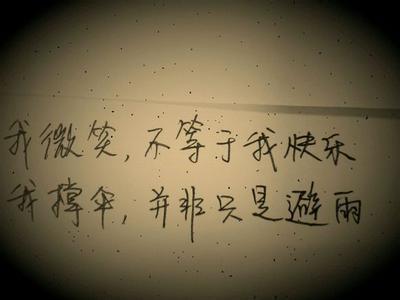 我微笑,不等于我快乐
我撑伞,并非只是避雨